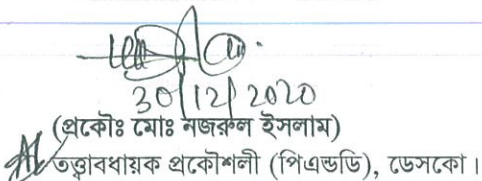 30/12/2020
(প্রকৌঃ মোঃ নজরুল ইসলাম)
তত্ত্বাবধায়ক প্রকৌশলী (পিএন্ডডি), ডেসকো।